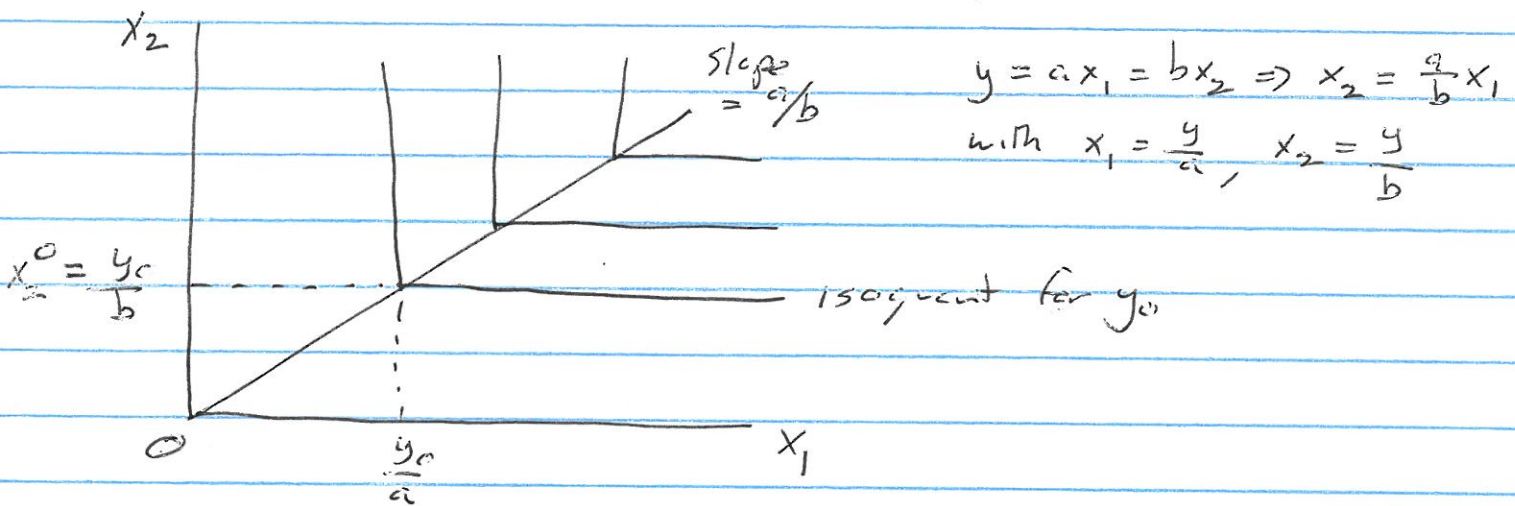 x₂
slope
= a/b
y = ax₁ = bx₂ ⇒ x₂ = a/b x₁
with x₁ = y/a, x₂ = y/b
x₂⁰ = y₀/b
isoquant for y₀
0
y₀/a
x₁